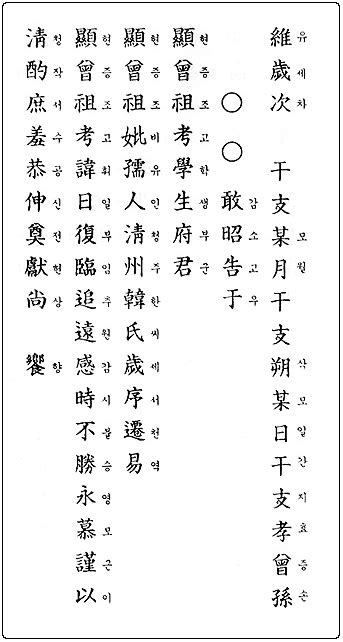 維歲次 干支某月干支朔某日干支孝曾孫
유세차 모월 삭모일간지효증손
○○敢昭告于
감소고우
顯曾祖考學生府君
현증조고학생부군
顯曾祖妣孺人淸州韓氏歲序遷易
현증조비유인청주한씨세서천역
顯曾祖考諱日復臨追遠感時不勝永慕謹以
현증조고휘일부임추원감시불승영모근이
淸酌庶羞恭伸奠獻尙 饗
청작서수공신전현상 향